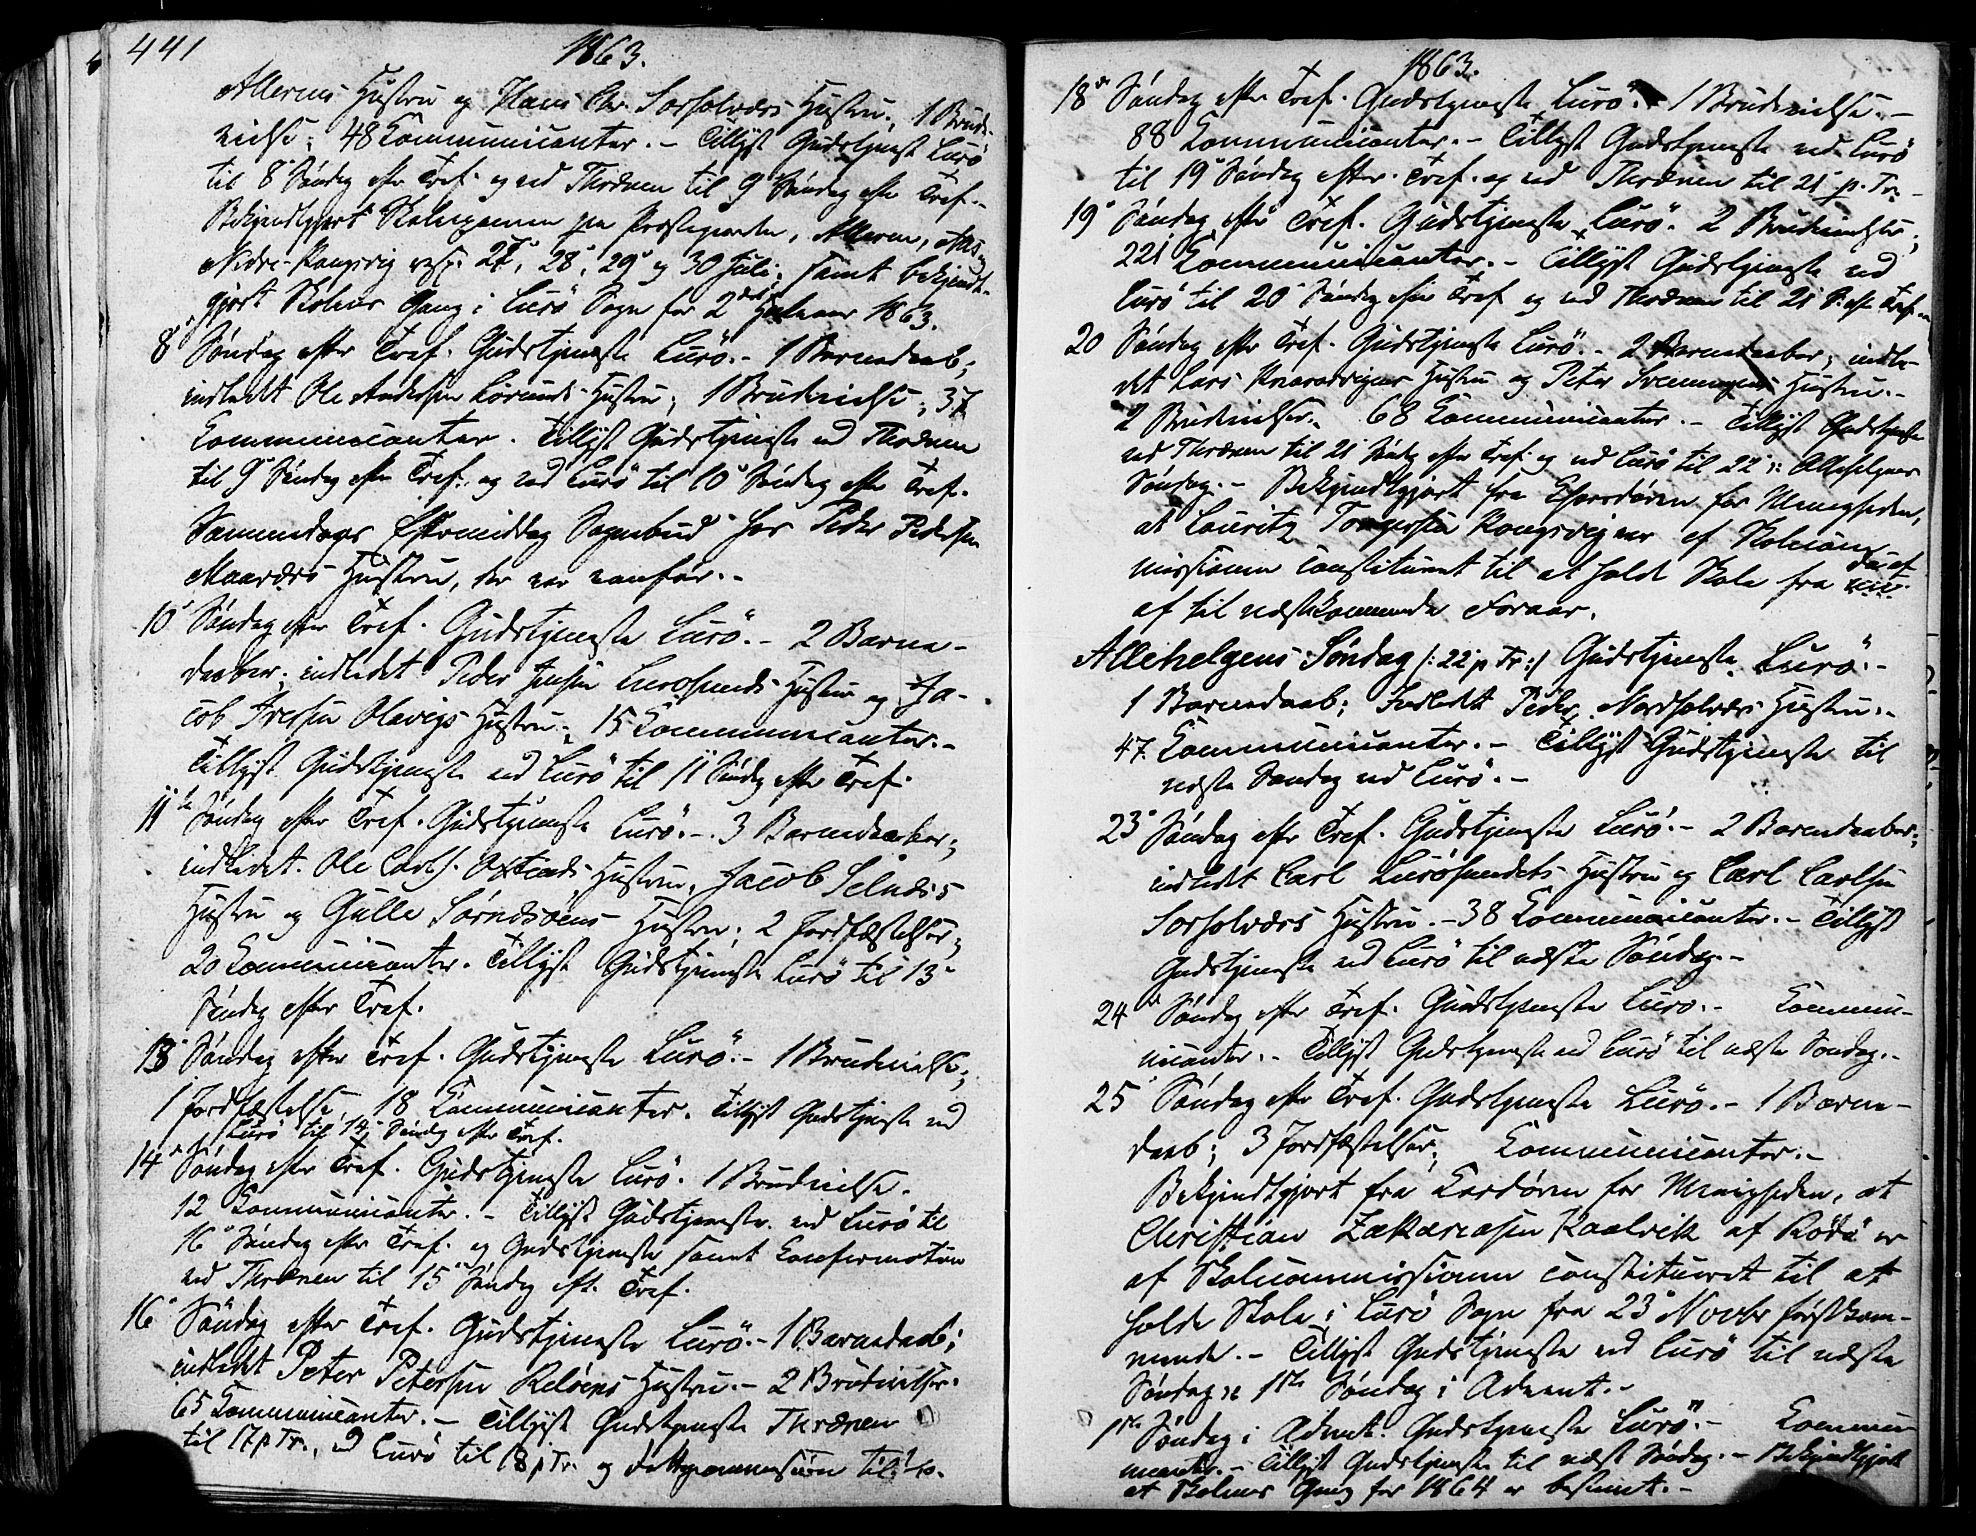 441
1863.
Hustru og Hans Chr. Sørholværs Hustru; 1 Brude-
vielse; 48 Communicanter. - Tillyst Gudstjeneste Lurö
til 8' Søndag efter Tref. og ved Thrænen til 9' Søndag efter Tref. -
Bekjendtgjort paa Præstegaarden, Alderen,
Nedre-Kongsvig resp. 27', 28', 29' og 30' Juli; samt bekjendt-
gjort Skolens Gang i Lurö Sogn for 2det Halvaar 1863.
8' Søndag efter Tref. Gudstjeneste Lurö. - 1 Barnedaab;
indledet Ole Andersen Hustru; 1 Brudevielse; 37
Communicanter. Tillyst Gudstjeneste ved Thrænen
til 9' Søndag efter Tref. og ved Lurö til 10' Søndag efter Tref.
Sammedags Eftermiddag Sognebud hos Peder Pedersen
Maaværs Hustru, der var vanfør. -
10' Søndag efter Tref. Gudstjeneste Lurö. - 2 Barne-
daaber; indledet Peder Jensen Lurösunds Hustru og Ja-
cob Iversen Olavigs Hustru; 15 Communicanter. -
Tillyst Gudstjeneste ved Lurö til 11 Søndag efter Tref.
11te Søndag efter Tref. Gudstjeneste Lurö. - 3 Barnedaaber;
indledet Ole Carls. Hustru, Jacob Selnæs's
Hustru og Gulle Hustru; 2 Jordfæstelser;
20 Communicanter. Tillyst Gudstjeneste Lurö til 13'
Søndag efter Tref.
13' Søndag efter Tref. Gudstjeneste Lurö. - 1 Brudevielse;
1 Jordfæstelse, 18 Communicanter. Tillyst Gudstjeneste ved
Lurö til 14' Søndag efter Tref.
14' Søndag efter Tref. Gudstjeneste Lurö. 1 Brudevielse.
12 Communicanter. - Tillyst Gudstjeneste ved Lurö til
16' Søndag efter Tref. og Gudstjeneste samt Confirmation
ved Thrænen til 15' Søndag eft. Tref.
16' Søndag efter Tref. Gudstjeneste Lurö. - 1 Barnedaab;
indledet Peter Petersen Reløens Hustru. - 2 Brudevielser.
65 Communicanter. - Tillyst Gudstjeneste Thrænen
til 17 p Tr., ved Lurö til 18 p Tr. og
1863.
18' Søndag efter Tref. Gudstjeneste Lurö. - 1 Brudevielse. -
88 Communicanter. - Tillyst Gudstjeneste ved Lurö
til 19' Søndag efter Tref. og ved Thrænen til 21' p. Tr. -
19' Søndag efter Tref. Gudstjeneste Lurö. 2 Brudevielser;
221 Communicanter. - Tillyst Gudstjeneste ved
Lurö til 20' Søndag efter Tref. og ved Thrænen til 21' S. efter Tref.
20 Søndag efter Tref. Gudstjeneste Lurö. - 2 Barnedaaber; indle-
det Lars Hustru og Peter Hustru. -
2 Brudevielser. 68 Communicanter. - Tillyst Gudstjeneste
ved Thrænen til 21' Søndag efter Tref. og ved Lurö til 22': Allehelgens
Søndag. - Bekjendtgjort fra Chordøren for Menigheden,
at Lauritz Kongsvig er af Skolecom-
missionen constitueret til at holde Skole fra
af til næstkommende Foraar.
Allehelgens Søndag (: 22' p Tr :) Gudstjeneste Lurö. -
1 Barnedaab; Indledet Peder Nordsolværs Hustru. -
47. Communicanter. - Tillyst Gudstjeneste til
næste Søndag ved Lurö. -
23' Søndag efter Tref. Gudstjeneste Lurö. - 2 Barnedaaber;
indledet Carl Lurösundets Hustru og Carl Carlsen
Sørsolværs Hustru. - 38 Communicanter. - Tillyst
Gudstjeneste ved Lurö til næste Søndag. -
24' Søndag efter Tref. Gudstjeneste Lurö. - Commu-
nicanter. - Tillyst Gudstjeneste ved Lurö til næste Søndag. -
25' Søndag efter Tref. Gudstjeneste Lurö. - 1 Barne-
daab; 3 Jordfæstelser; Communicanter. -
Bekjendtgjort fra Cordøren for Menigheden, at
Christian Zakariasen Kaalvik af Rödö er
af Skolecommissionen constitueret til at
holde Skole i Lurö Sogn fra 23' Novbr førstkom-
mende. - Tillyst Gudstjeneste ved Lurö til næste
Søndag: 1ste Søndag i Advent. -
1ste Søndag i Advent. Gudstjeneste Lurö. - Commu-
nicanter. - Tillyst Gudstjeneste til næste Søndag. - Bekjendtgjort
at Skolens Gang for 1864 er bestemt. -